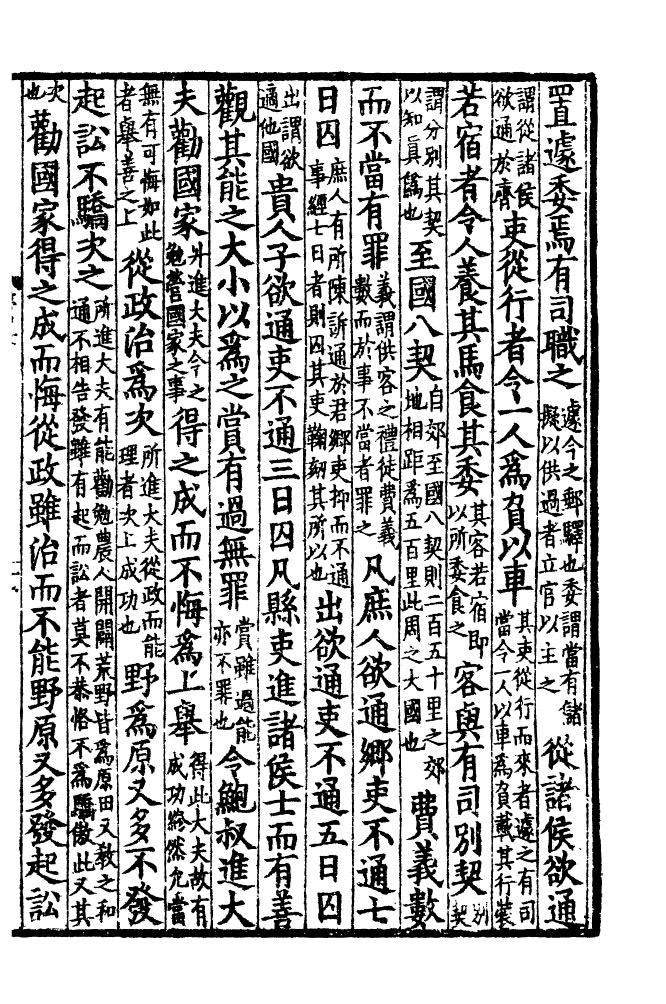 置遽委焉有司職之遽今之郵驛也委謂當有儲擬以供過者立官以主之從諸侯欲通
謂從諸侯欲通於齊吏從行者令一人為負以車其吏從行而來者遽之有司當令一人以車為負載其行裝
若宿者令人養其馬食其委其客若宿即以所委食之客與有司別契別契
謂分別其契以知眞偽也至國八契自郊至國八契則二百五十里之郊地相距為五百里此周之大國也費義數
而不當有罪義謂供客之禮徒費義數而於事不當者罪之凡庶人欲通鄉吏不通七
日囚庶人有所陳訴通於君鄉吏抑而不通事經七日者則囚其吏鞫劾其所以也出欲通吏不通五日囚
出謂欲適他國貴人子欲通吏不通三日囚凡縣吏進諸侯士而有善
觀其能之大小以為之賞有過無罪賞雖過能亦不罪也令鮑叔進大
夫勸國家外進大夫令之勉營國家之事得之成而不悔為上舉得此大夫故有成功終然允當
無有可悔如此者舉善之上從政治為次所進大夫從政而能理者次上成功也野為原又多不發
起訟不驕次之所進大夫有能勸勉農人開闢荒野皆為原田又教之和通不相告發雖有起而訟者莫不恭恪不為驕傲此又其
次也勸國家得之成而悔從政雖治而不能野原又多發起訟